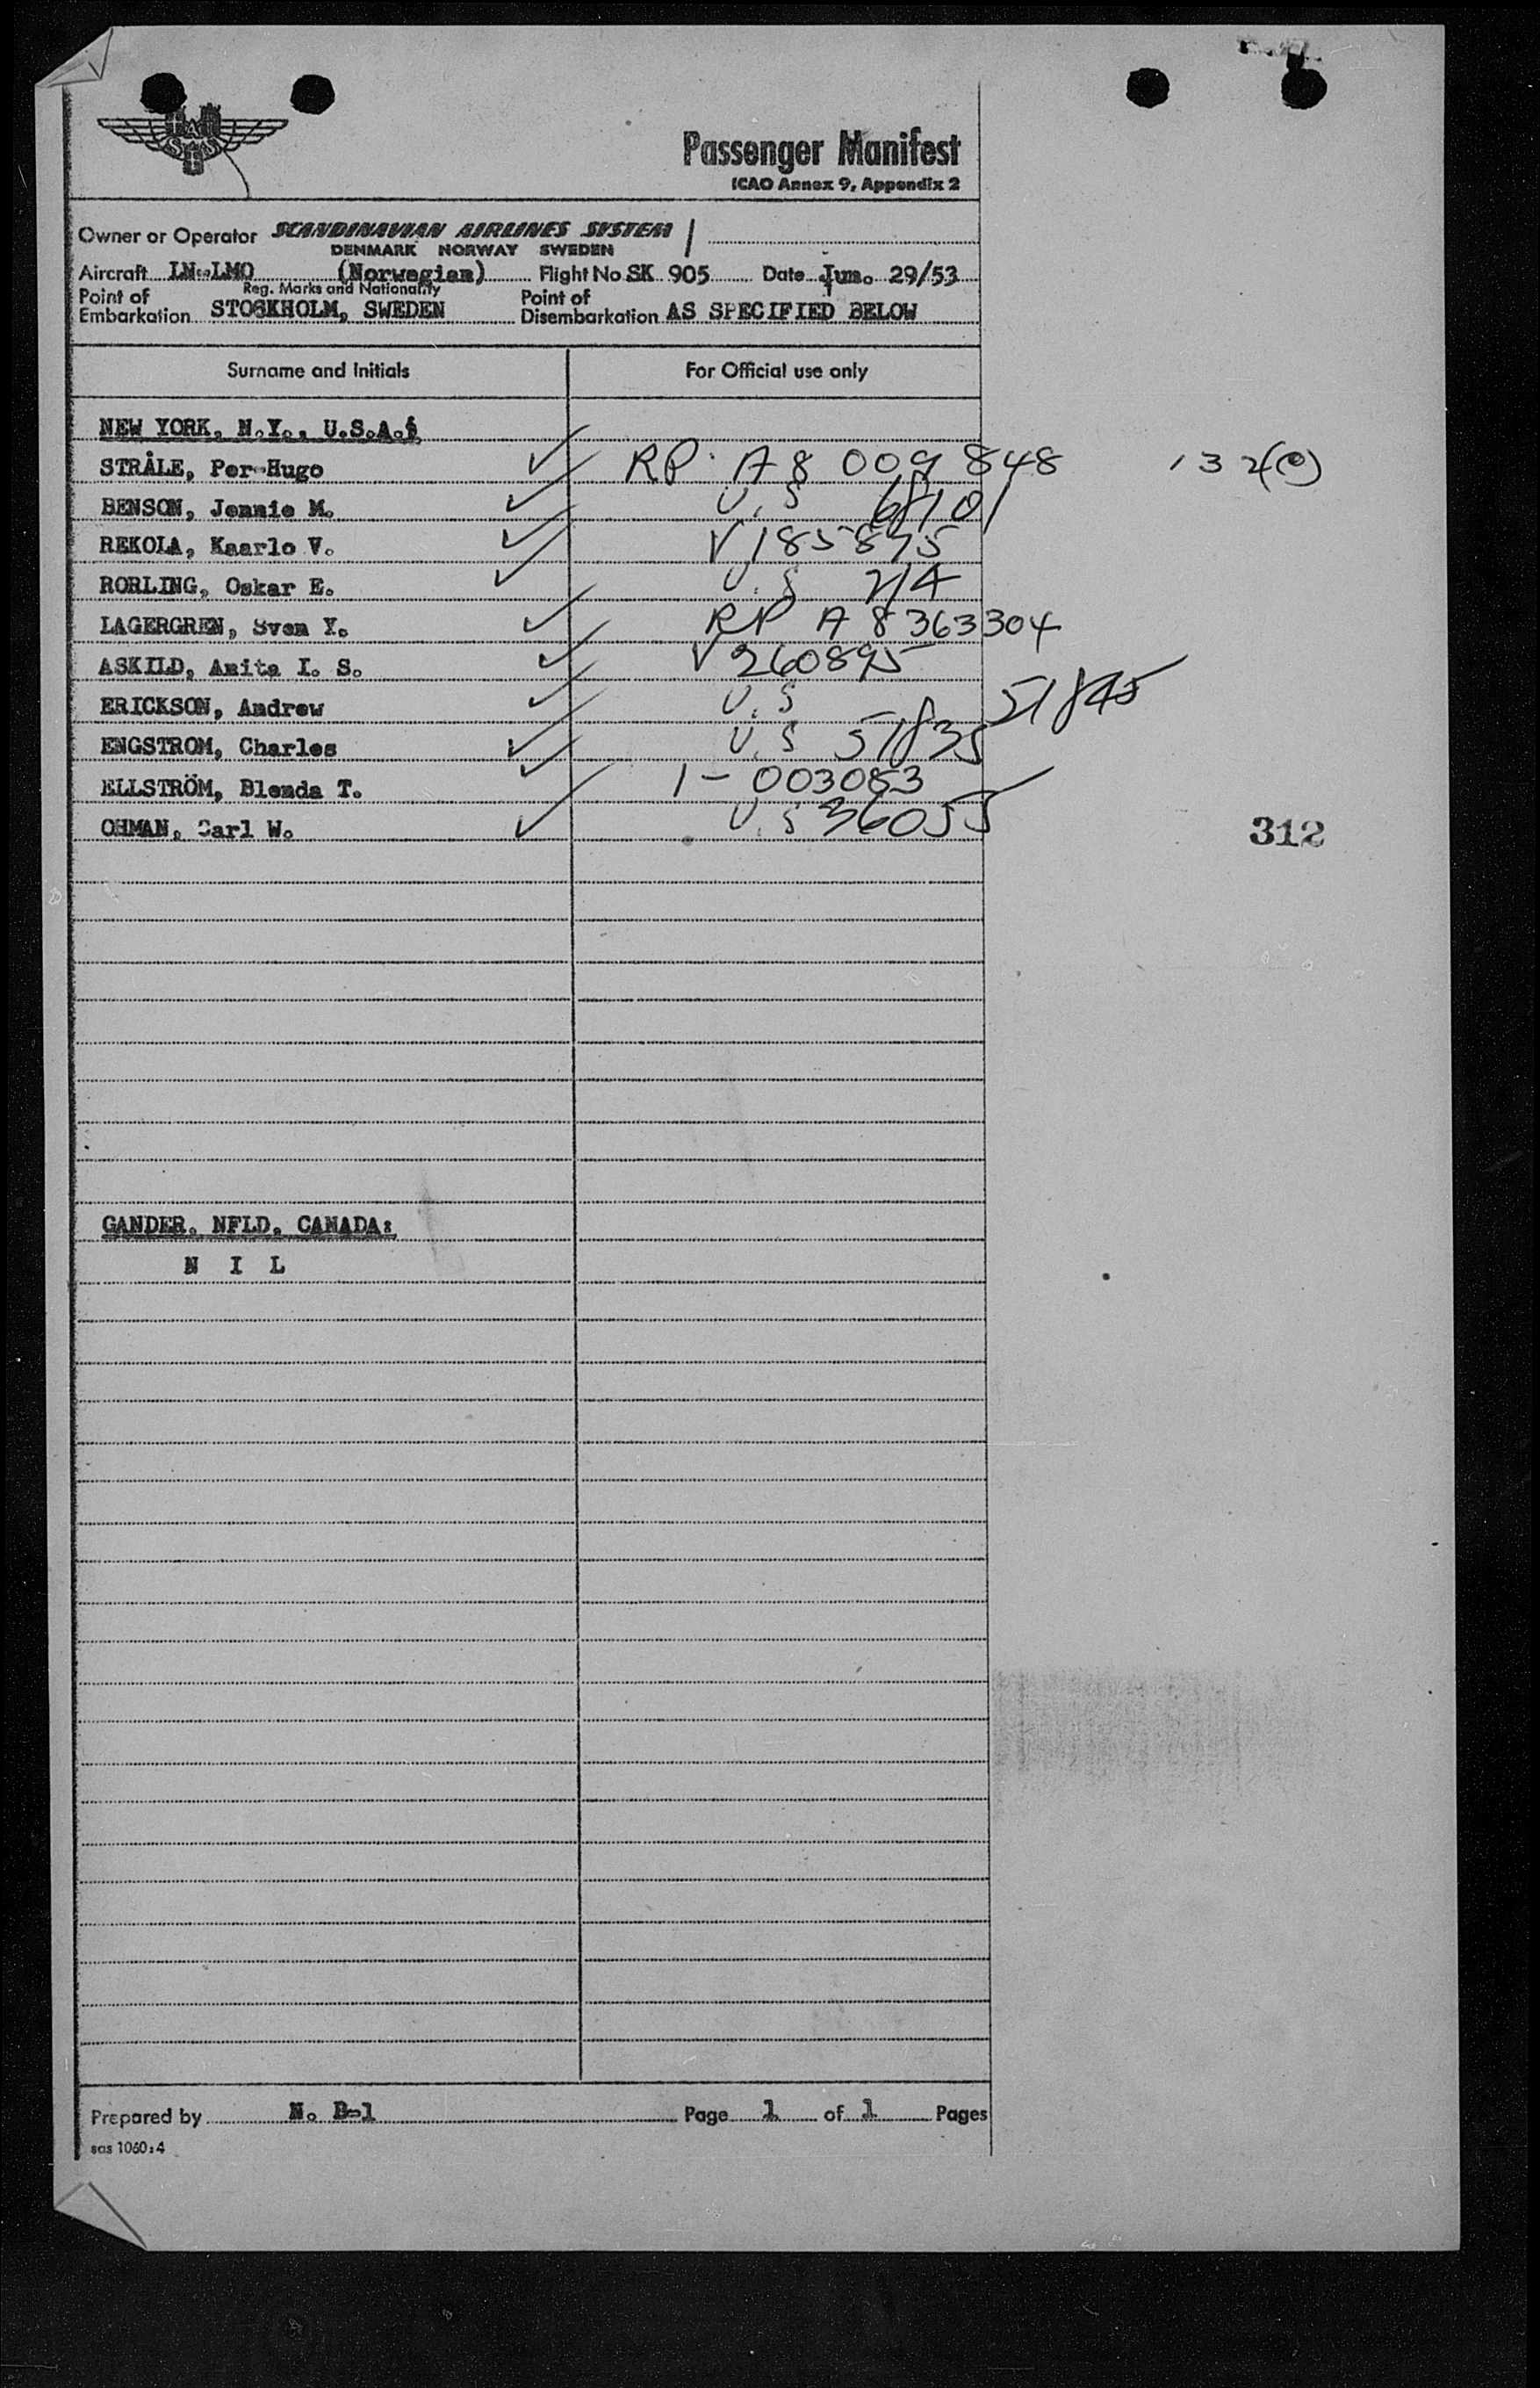 SAS
Passenger Manifest
ICAO Annex 9, Appendix 2
Owner or Operator SCANDINAVIAN AIRLINES SYSTEM
DENMARK NORWAY SWEDEN
Aircraft LN-LMO (Norwegian) Flight No. SK 905 Date Jun. 29/53
Reg. Marks and Nationality
Point of Embarkation STOCKHOLM, SWEDEN Point of Disembarkation AS SPECIFIED BELOW
Surname and Initials For Official use only
NEW YORK, N.Y., U.S.A.:
STRÅLE, Per-Hugo RP A8 009 848
BENSON, Jennie M. U.S
REKOLA, Kaarlo V. V 185875
RORLING, Oskar E. U.S 214
LAGERGREN, Sven Y. RP A 8363304
ASKILD, Anita I. S. V 260895
ERICKSON, Andrew U.S 51845
ENGSTROM, Charles U.S 51835
ELLSTRÖM, Blenda T. 1-003083
OHMAN, Carl W. U.S 36055
312
GANDER, NFLD, CANADA:
N I L
Prepared by N. B-l Page 1 of 1 Pages
sas 1060:4